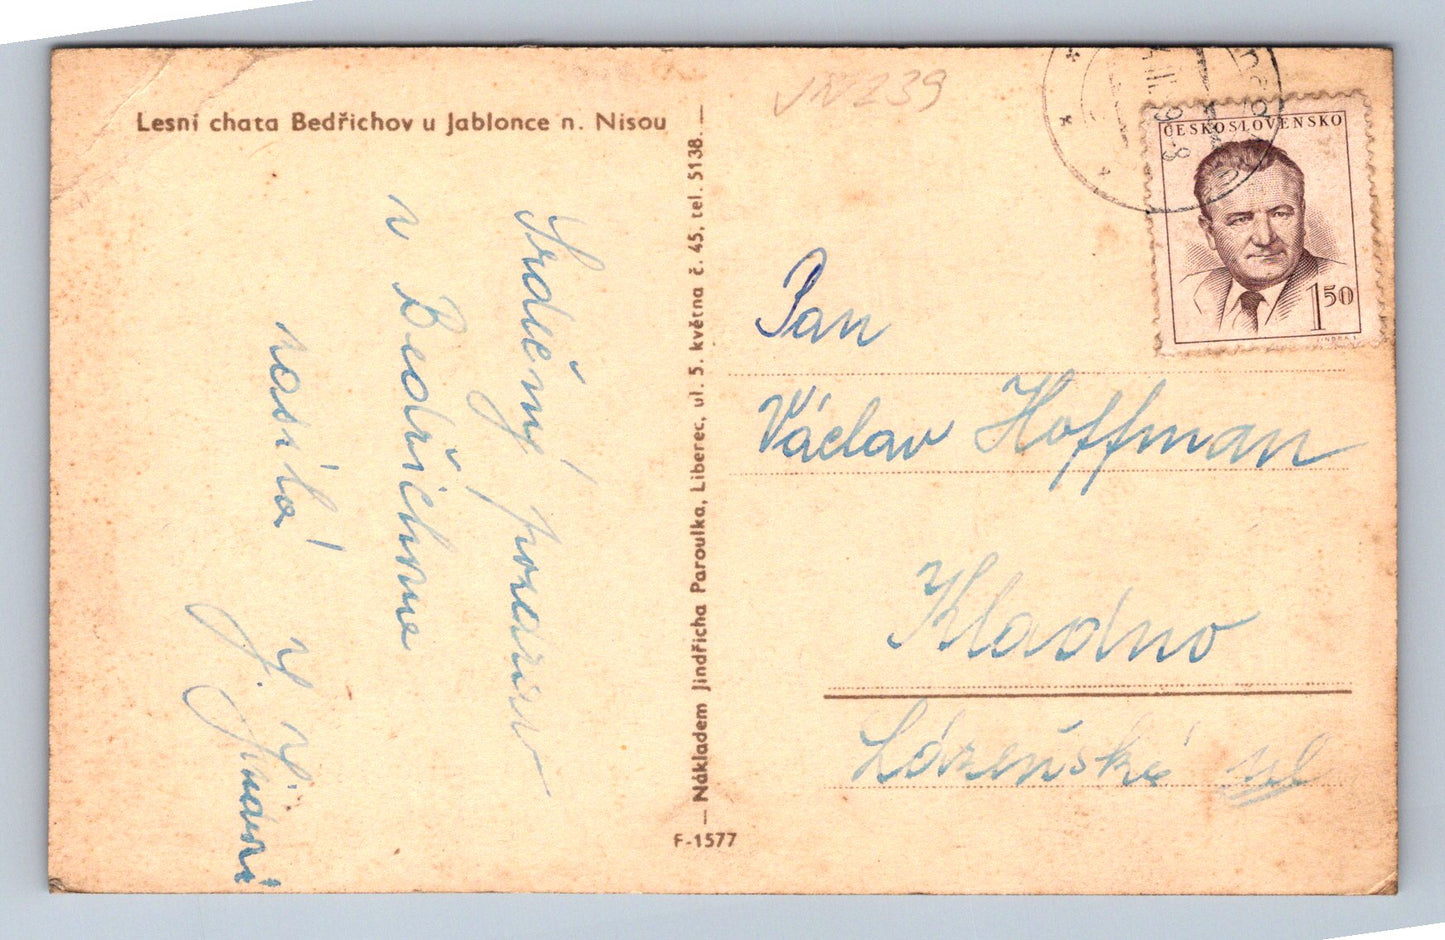 Lesní chata Bedřichov u Jablonce n. Nisou
Srdečný pozdrav
z Bedřichova
zasílá
J. J.
— Nákladem Jindřicha Paroulka, Liberec, ul. 5. května č. 45, tel. 5138. —
F-1577
VN239
ČESKOSLOVENSKO
1 50
Pan
Václav Hoffman
Kladno
Lázeňská ul